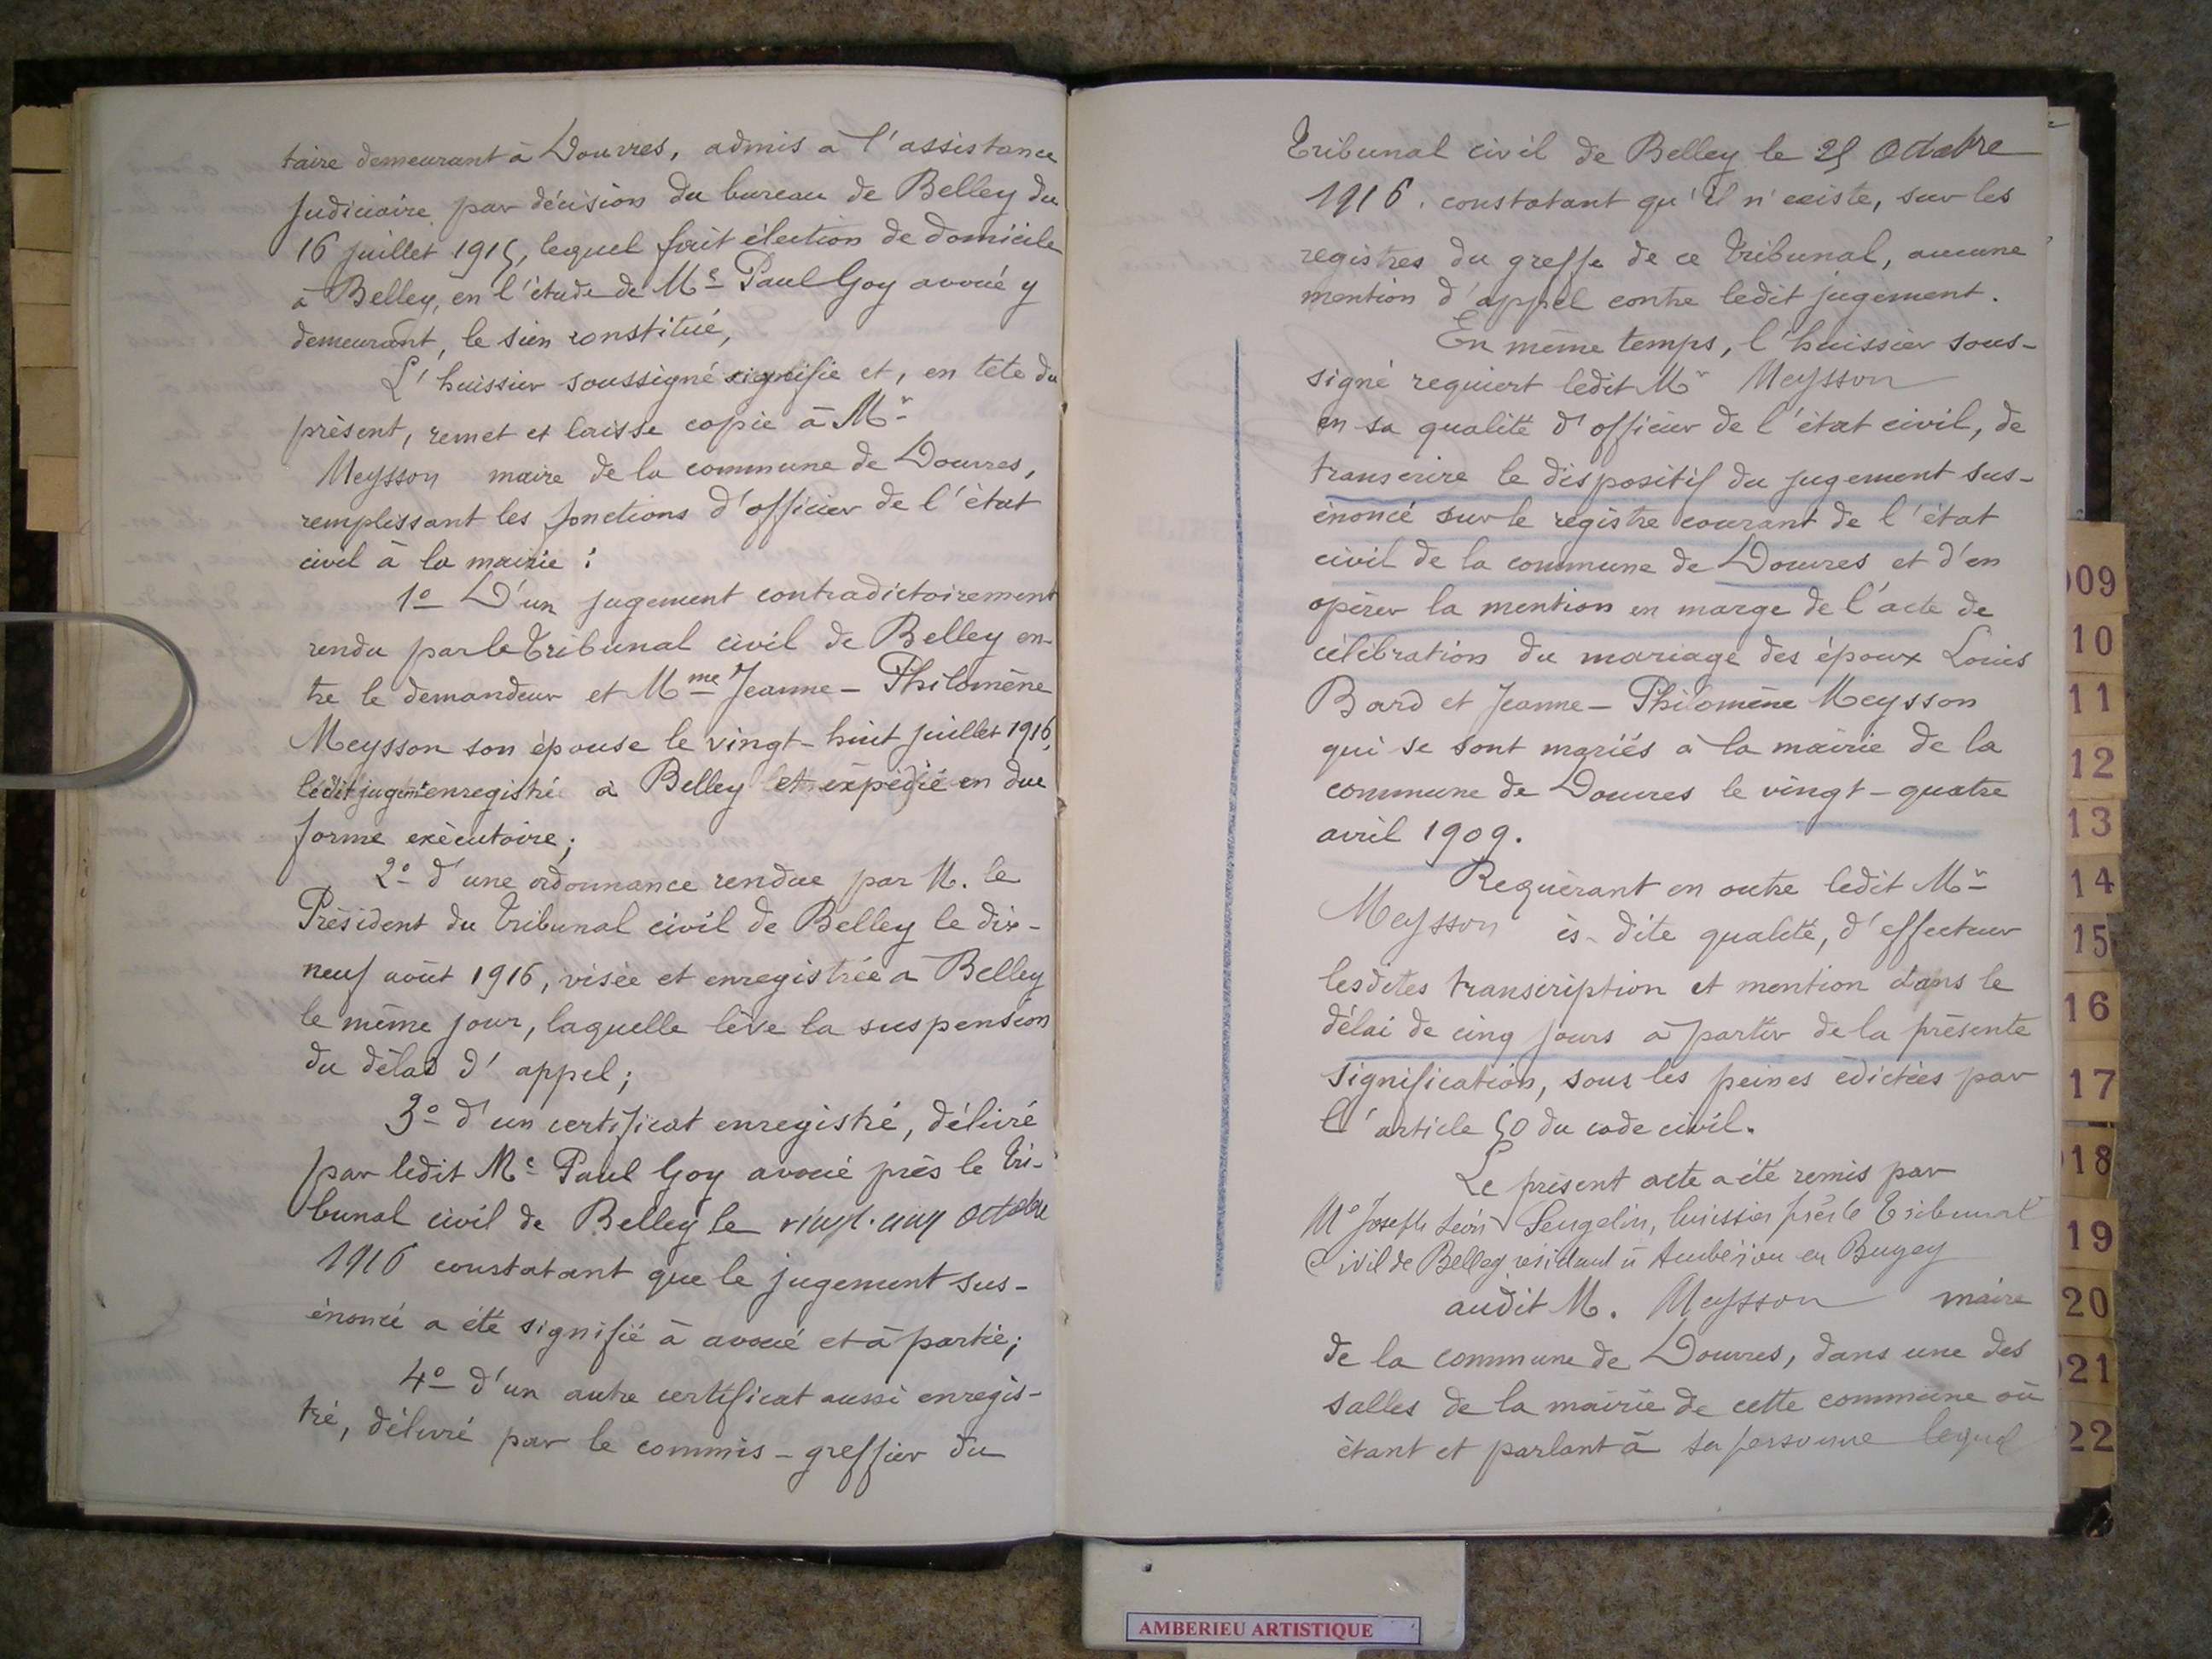 taire demeurant à Douvres, admis a l'assistance
judiciaire par décision du bureau de Belley du
16 juillet 1915, lequel fait élection de domicile
à Belley, en l'étude de Me Paul Goy avoué y
demeurant, le sien constitué,
L'huissier soussigné signifie et, en tête du
présent, remet et laisse copie à Mr
Meysson maire de la commune de Douvres,
remplissant les fonctions d'officier de l'état
civil à la mairie :
1o D'un jugement contradictoirement
rendu par le Tribunal civil de Belley en-
tre le demandeur et Mme Jeanne-Philomène
Meysson son épouse le vingt-huit juillet 1916,
ledit jugemt enregistré à Belley et expédié en due
forme exécutoire;
2o d'une ordonnance rendue par M. le
Président du Tribunal civil de Belley le dix-
neuf août 1916, visée et enregistrée a Belley
le même jour, laquelle lève la suspension
du délai d'appel;
3o d'un certificat enregistré, délivré
par ledit Me Paul Goy avoué près le Tri-
bunal civil de Belley le vingt-cinq Octobre
1916 constatant que le jugement sus-
énoncé a été signifié à avoué et à partie;
4o d'un autre certificat aussi enregis-
tré, délivré par le commis-greffier du
Tribunal civil de Belley le 25 Octobre
1916. constatant qu'il n'existe, sur les
registres du greffe de ce Tribunal, aucune
mention d'appel contre ledit jugement.
En même temps, l'huissier sous-
signé requiert ledit Mr Meysson
en sa qualité d'officier de l'état civil, de
transcrire le dispositif du jugement sus-
énoncé sur le registre courant de l'état
civil de la commune de Douvres et d'en
opérer la mention en marge de l'acte de
célébration du mariage des époux Louis
Bard et Jeanne-Philomène Meysson
qui se sont mariés à la mairie de la
commune de Douvres le vingt-quatre
avril 1909.
Requérant en outre ledit Mr
Meysson ès-dite qualité, d'effectuer
lesdites transcription et mention dans le
délai de cinq jours à partir de la présente
signification, sous les peines édictées par
l'article 50 du code civil.
Le présent acte a été remis par
Me Joseph Léon huissier près le Tribunal
Civil de Belley résidant à Ambérieu en Bugey
audit M. Meysson maire
de la commune de Douvres, dans une des
salles de la mairie de cette commune où
étant et parlant à sa personne lequel
09
10
11
12
13
14
15
16
17
18
19
20
21
22
AMBERIEU ARTISTIQUE